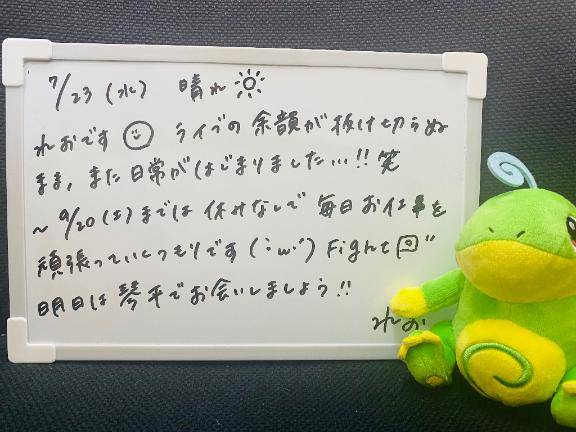 7/23 (水) 晴れ
れおです ライブの余韻が抜け切らぬ
まま、また日常がはじまりました…!! 笑
~ 9/20 (土) までは 休みなしで 毎日お仕事を
頑張っていくつもりです (・ω・´) Fight
明日は 琴平でお会いしましょう!!
れお